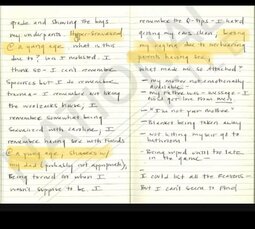 grade and showing the boys
my underpants. Hyper-sexualized
@ a young age. What is this
due to? Was I molested. I
think so - I can't remember
specifics but I do remember
trauma - I remember not liking
the woolzacks house; I
remember somewhat being
sexualized with Caroline; I
remember having sex with friends
@ a young age; showers w/
my dad (probably not appropriate).
Being turned on when I
wasn't suppose to be. I
remember the Q-tips - I hated
getting my ears clean,
my vagina due to
What made me so attached?
- my mother not emotionally
available -
- my father was - message - I
could get love from men
- "I'm not your mother"
- Blankee being taken away
- not letting myself go to
bathrooms
- Being moved until too late
in the game -
I could list all the reasons
But I can't seem to find